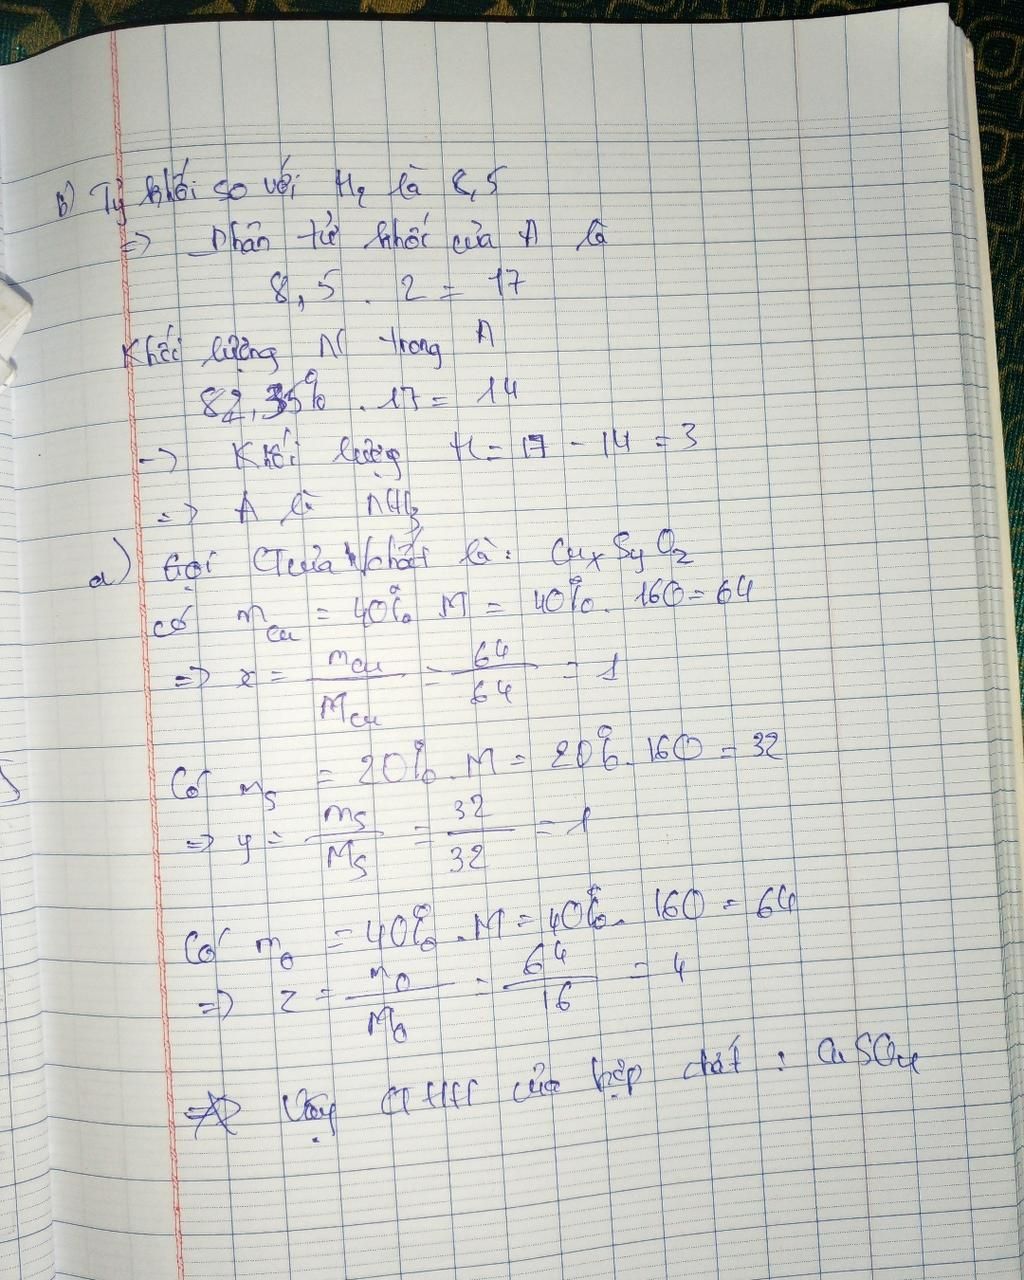 b) Tỷ khối so với H₂ là 8,5
=> Phân tử khối của A là
8,5 . 2 = 17
Khối lượng N trong A
82,35% . 17 = 14
-> Khối lượng H = 17 - 14 = 3
=> A là NH₃
a) Gọi CT của h/chất là: CuₓSyO₂
có m_Cu = 40% M = 40% . 160 = 64
=> x = m_Cu / M_Cu = 64 / 64 = 1
Có m_S = 20% . M = 20% . 160 = 32
=> y = m_S / M_S = 32 / 32 = 1
Có m_O = 40% . M = 40% . 160 = 64
=> z = m_O / M_O = 64 / 16 = 4
=> Vậy CTHH của hợp chất : CuSO₄